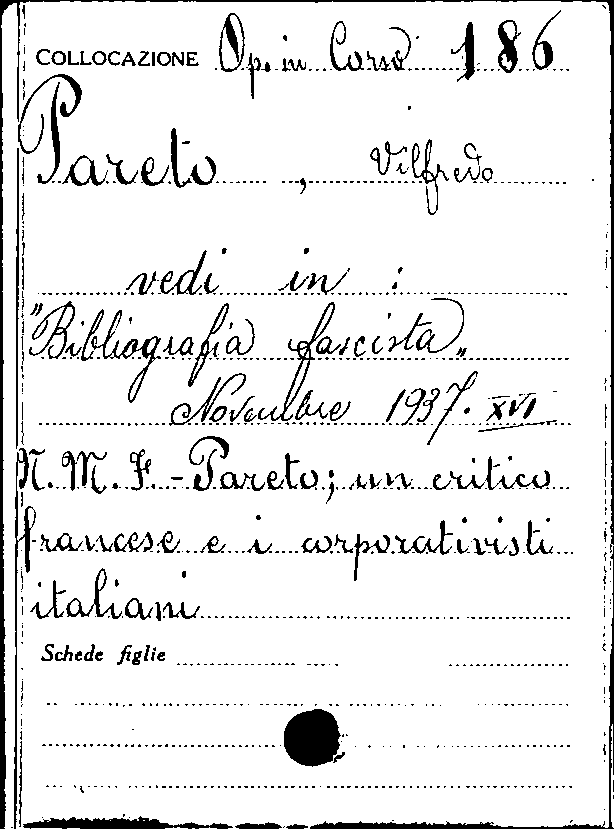 COLLOCAZIONE Op. in Corso 186
Pareto , Vilfredo
vedi in :
"Bibliografia fascista„
Novembre 1937. XVI
N. M. F. - Pareto; un critico
francese e i corporativisti
italiani
Schede figlie